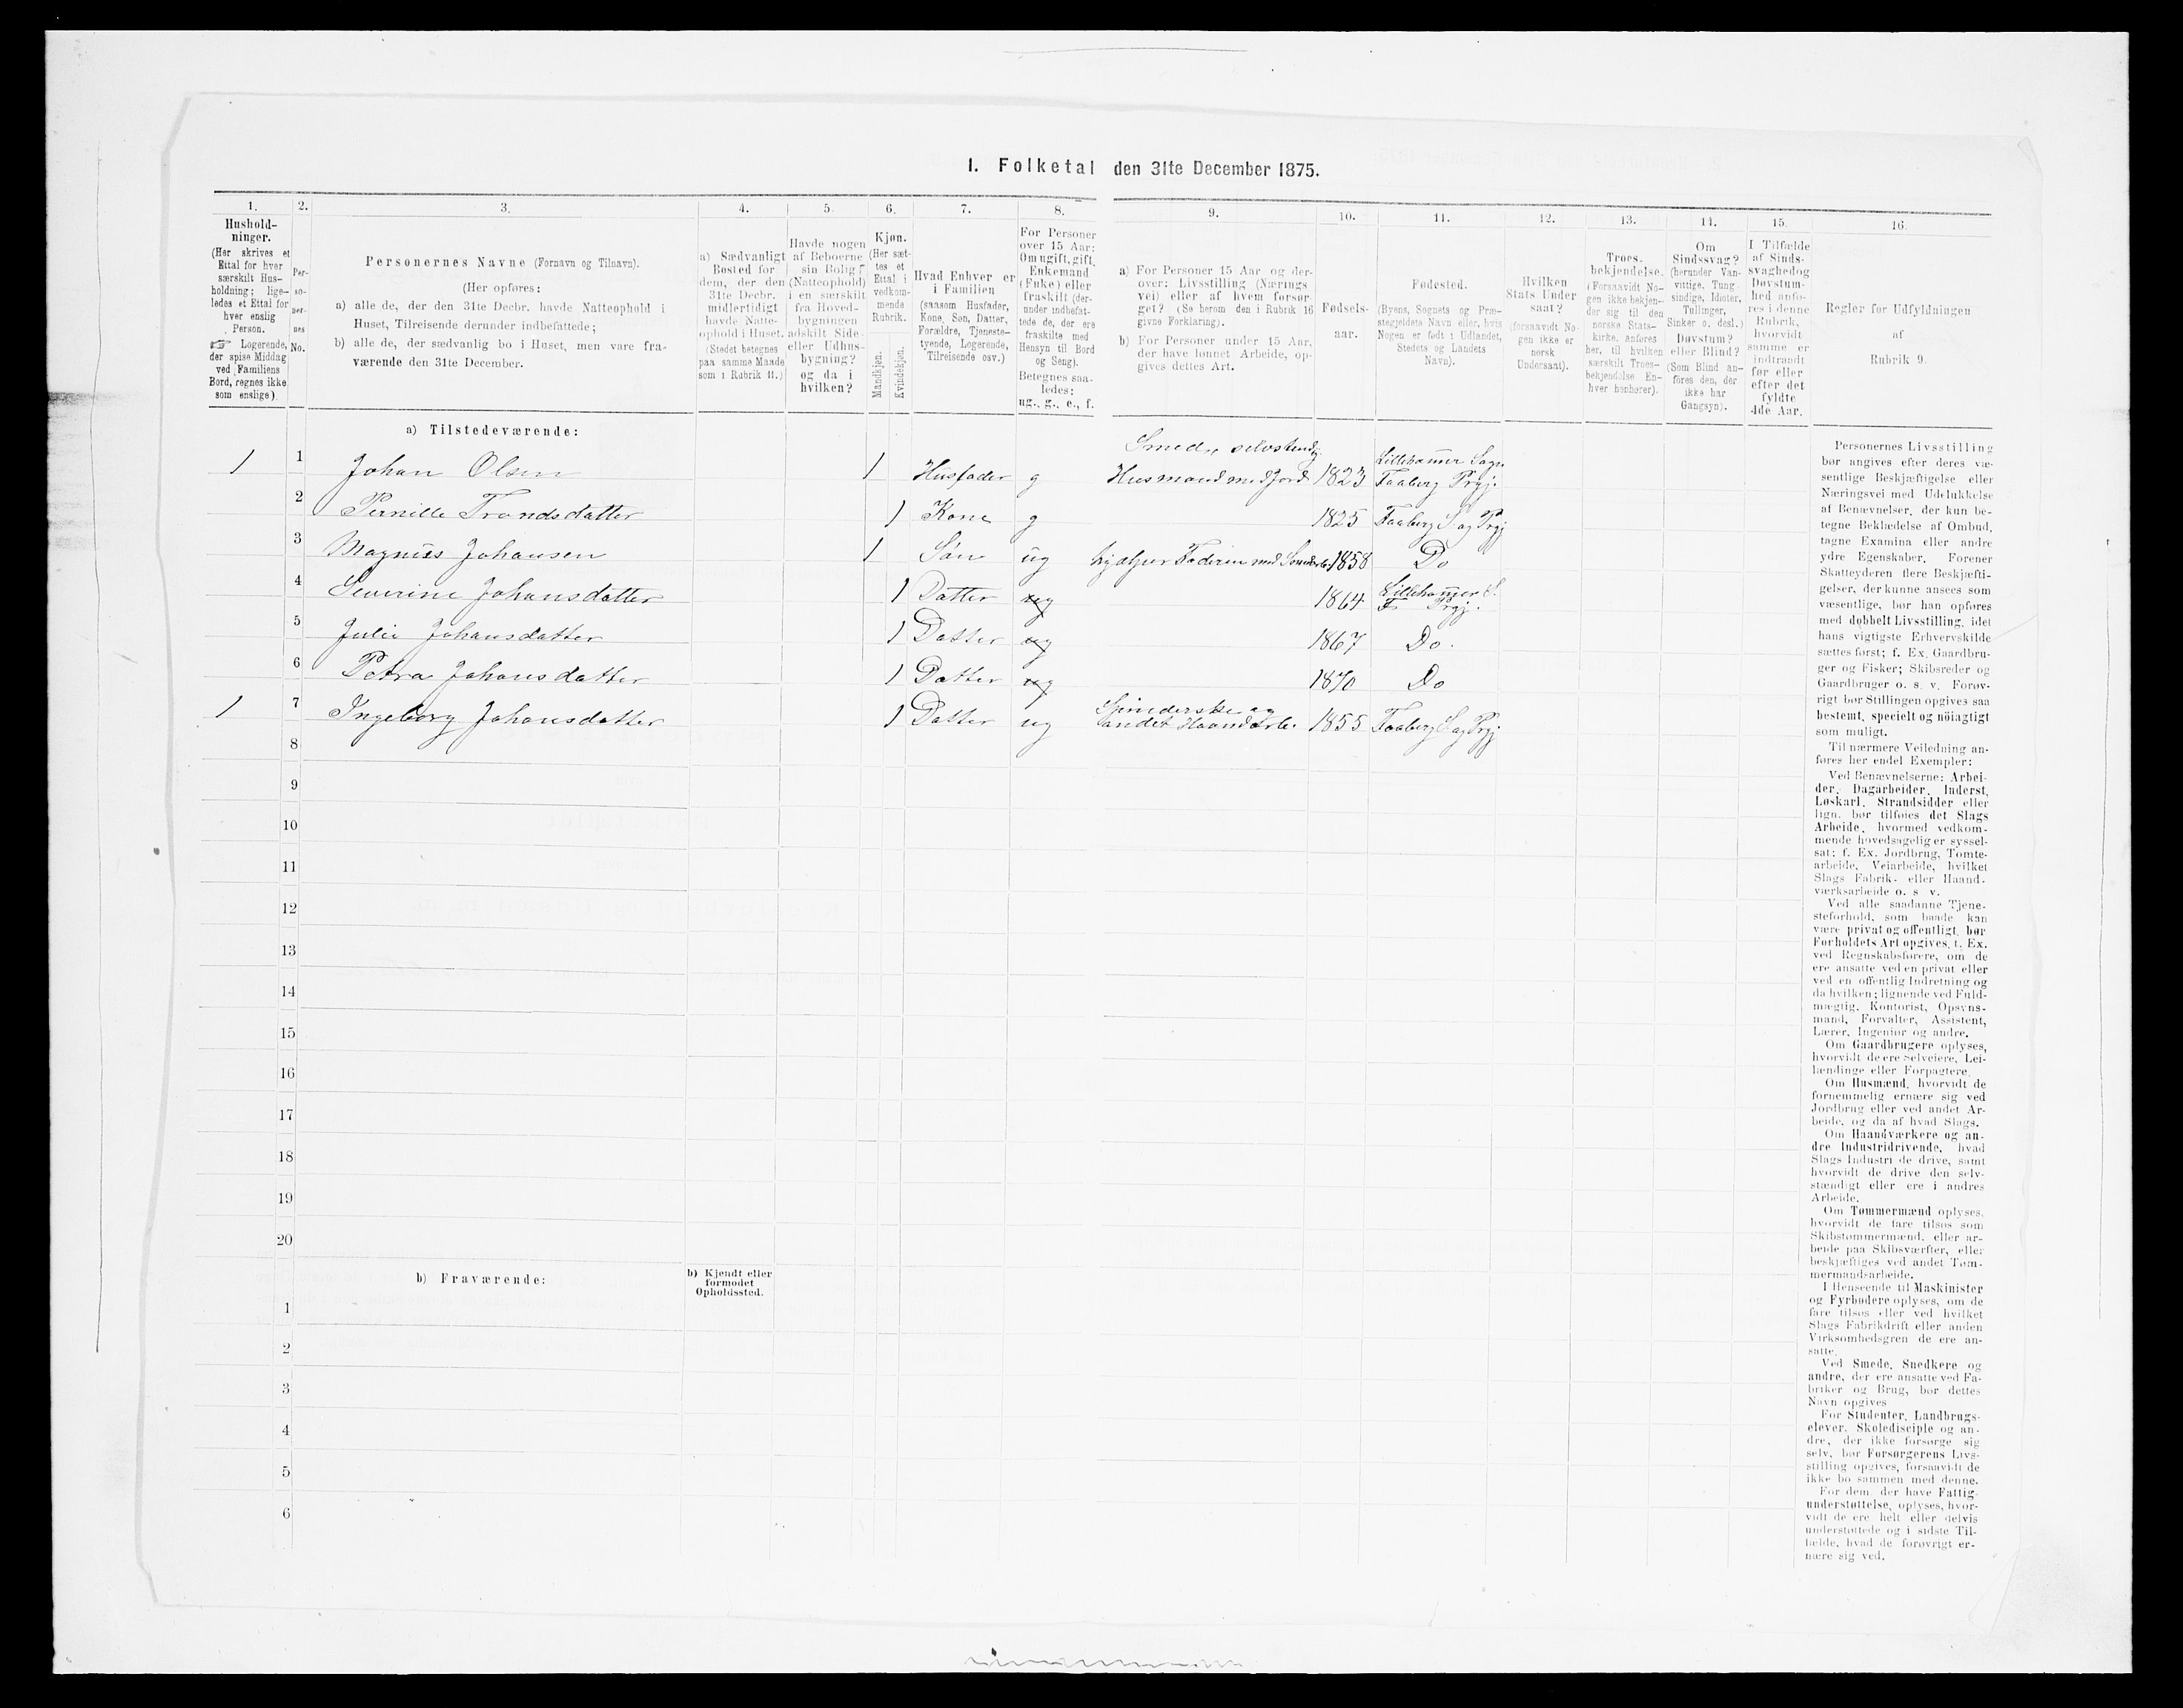 I. Folketal den 31te December 1875.
1.
Hushold-
ninger.
(Her skrives et
Ettal for hver
særskilt Hus-
holdning; lige-
ledes et Ettal for
hver enslig
Person.
☞ Logerende,
der spise Middag
ved Familiens
Bord, regnes ikke
som enslige).
2.
Per-
so-
ner-
nes
No.
3.
Personernes Navne (Fornavn og Tilnavn).
(Her opføres:
a) alle de, der den 31te Decbr. havde Natteophold i
Huset, Tilreisende derunder indbefattede;
b) alle de, der sædvanlig bo i Huset, men vare fra-
værende den 31te December.
4.
a) Sædvanligt
Bosted for
dem, der den
31te Decbr.
midlertidigt
havde Natte-
ophold i Huset.
(Stedet betegnes
paa samme Maade
som i Rubrik 11.)
5.
Havde nogen
af Beboerne
sin Bolig
(Natteophold)
i en særskilt
fra Hoved-
bygningen
adskilt Side-
eller Udhus-
bygning?
og da i
hvilken?
6.
Kjøn.
(Her sæt-
tes et
Ettal i
vedkom-
mende
Rubrik.
Mandkjøn.
Kvindekjøn.
7.
Hvad Enhver er
i Familien
(saasom Husfader,
Kone, Søn, Datter,
Forældre, Tjeneste-
tyende, Logerende,
Tilreisende osv.)
8.
For Personer
over 15 Aar:
Om ugift, gift,
Enkemand
(Enke) eller
fraskilt (der-
under indbefat-
tede de, der ere
fraskilte med
Hensyn til Bord
og Seng).
Betegnes saa-
ledes:
ug., g., e., f.
9.
a) For Personer 15 Aar og der-
over: Livsstilling (Nærings
vei) eller af hvem forsør-
get? (Se herom den i Rubrik 16
givne Forklaring).
b) For Personer under 15 Aar,
der have lønnet Arbeide, op-
gives dettes Art.
10.
Fødsels-
aar.
11.
Fødested.
(Byens, Sognets og Præ-
stegjeldets Navn eller, hvis
Nogen er født i Udlandet,
Stedets og Landets
Navn).
12.
Hvilken
Stats Under
saat?
(forsaavidt No-
gen ikke er
norsk
Undersaat).
13.
Troes-
bekjendelse.
(Forsaavidt No-
gen ikke bekjen-
der sig til den
norske Stats-
kirke, anføres
her, til hvilken
særskilt Troes-
bekjendelse En-
hver henhører).
14.
Om
Sindssvag?
(herunder Van-
vittige, Tung-
sindige, Idioter,
Tullinger,
Sinker o. desl.)
Døvstum?
eller Blind?
(Som Blind an-
føres den, der
ikke har
Gangsyn).
15.
I Tilfælde
af Sinds-
svaghed og
Døvstum-
hed anfø-
res i denne
Rubrik,
hvorvidt
samme er
indtraadt
før eller
efter det
fyldte
4de Aar.
16.
Regler for Udfyldningen
af
Rubrik 9.
a) Tilstedeværende:
Smed, selvstendig
1 1 Johan Olsen 1 Husfader g Husmand med Jord 1823 Lillehammer Sogn
Faaberg Prgj.
2 Pernille Trondsdatter 1 Kone g 1825 Faaberg S og Prgj
3 Magnus Johansen 1 Søn ug hjælper Faderen med 1858 Do
4 Severine Johansdatter 1 Datter ug 1864 Lillehammer S.
F Prgj.
5 Julie Johansdatter 1 Datter ug 1867 Do.
6 Petra Johansdatter 1 Datter ug 1870 Do
1 7 Ingeborg Johansdatter 1 Datter ug Spinderske og
andet Haandarb. 1855 Faaberg S og Prgj
8
9
10
11
12
13
14
15
16
17
18
19
20
b) Fraværende:
b) Kjendt eller
formodet
Opholdssted.
1
2
3
4
5
6
Personernes Livsstilling
bør angives efter deres væ-
sentlige Beskjæftigelse eller
Næringsvei med Udelukkelse
af Benævnelser, der kun be-
tegne Beklædelse af Ombud,
tagne Examina eller andre
ydre Egenskaber. Forener
Skatteyderen flere Beskjæfti-
gelser, der kunne ansees som
væsentlige, bør han opføres
med dobbelt Livsstilling, idet
hans vigtigste Erhvervskilde
sættes først; f. Ex. Gaardbru-
ger og Fisker; Skibsreder og
Gaardbruger o. s. v. Forøv-
rigt bør Stillingen opgives saa
bestemt, specielt og nöiagtigt
som muligt.
Til nærmere Veiledning an-
føres her endel Exempler:
Ved Benævnelserne: Arbei-
der, Dagarbeider, Inderst,
Løskarl, Strandsidder eller
lign. bør tilføies det Slags
Arbeide, hvormed vedkom-
mende hovedsagelig er syssel-
sat; f. Ex. Jordbrug, Tomte-
arbeide, Veiarbeide, hvilket
Slags Fabrik- eller Haand-
værksarbeide o. s. v.
Ved alle saadanne Tjene-
steforhold, som baade kan
være privat og offentligt, bør
Forholdets Art opgives, f. Ex.
ved Regnskabsførere, om de
ere ansatte ved en privat eller
ved en offentlig Indretning og
da hvilken; lignende ved Fuld-
mægtig, Kontorist, Opsyns-
mand, Forvalter, Assistent,
Lærer, Ingeniør og andre.
Om Gaardbrugere oplyses,
hvorvidt de ere Selveiere, Lei-
lændinge eller Forpagtere.
Om Husmænd, hvorvidt de
fornemmelig ernære sig ved
Jordbrug eller ved andet Ar-
beide, og da af hvad Slags.
Om Haandværkere og an-
dre Industridrivende, hvad
Slags Industri de drive, samt
hvorvidt de drive den selv-
stændigt eller ere i andres
Arbeide.
Om Tømmermænd oplyses,
hvorvidt de fare tilsøs som
Skibstømmermænd, eller ar-
beide paa Skibsværfter, eller
beskjæftiges ved andet Tøm-
mermandsarbeide.
I Henseende til Maskinister
og Fyrbødere oplyses, om de
fare tilsøs eller ved hvilket
Slags Fabrikdrift eller anden
Virksomhedsgren de ere an-
satte.
Ved Smede, Snedkere og
andre, der ere ansatte ved Fa-
briker og Brug, bør dettes
Navn opgives
For Studenter, Landbrugs-
elever, Skoledisciple og an-
dre, der ikke forsørge sig
selv, bør Forsørgerens Livs-
stilling opgives, forsaavidt de
ikke bo sammen med denne.
For dem, der have Fattig-
understøttelse, oplyses, hvor-
vidt de ere helt eller delvis
understøttede og i sidste Til-
fælde, hvad de forøvrigt er-
nære sig ved.